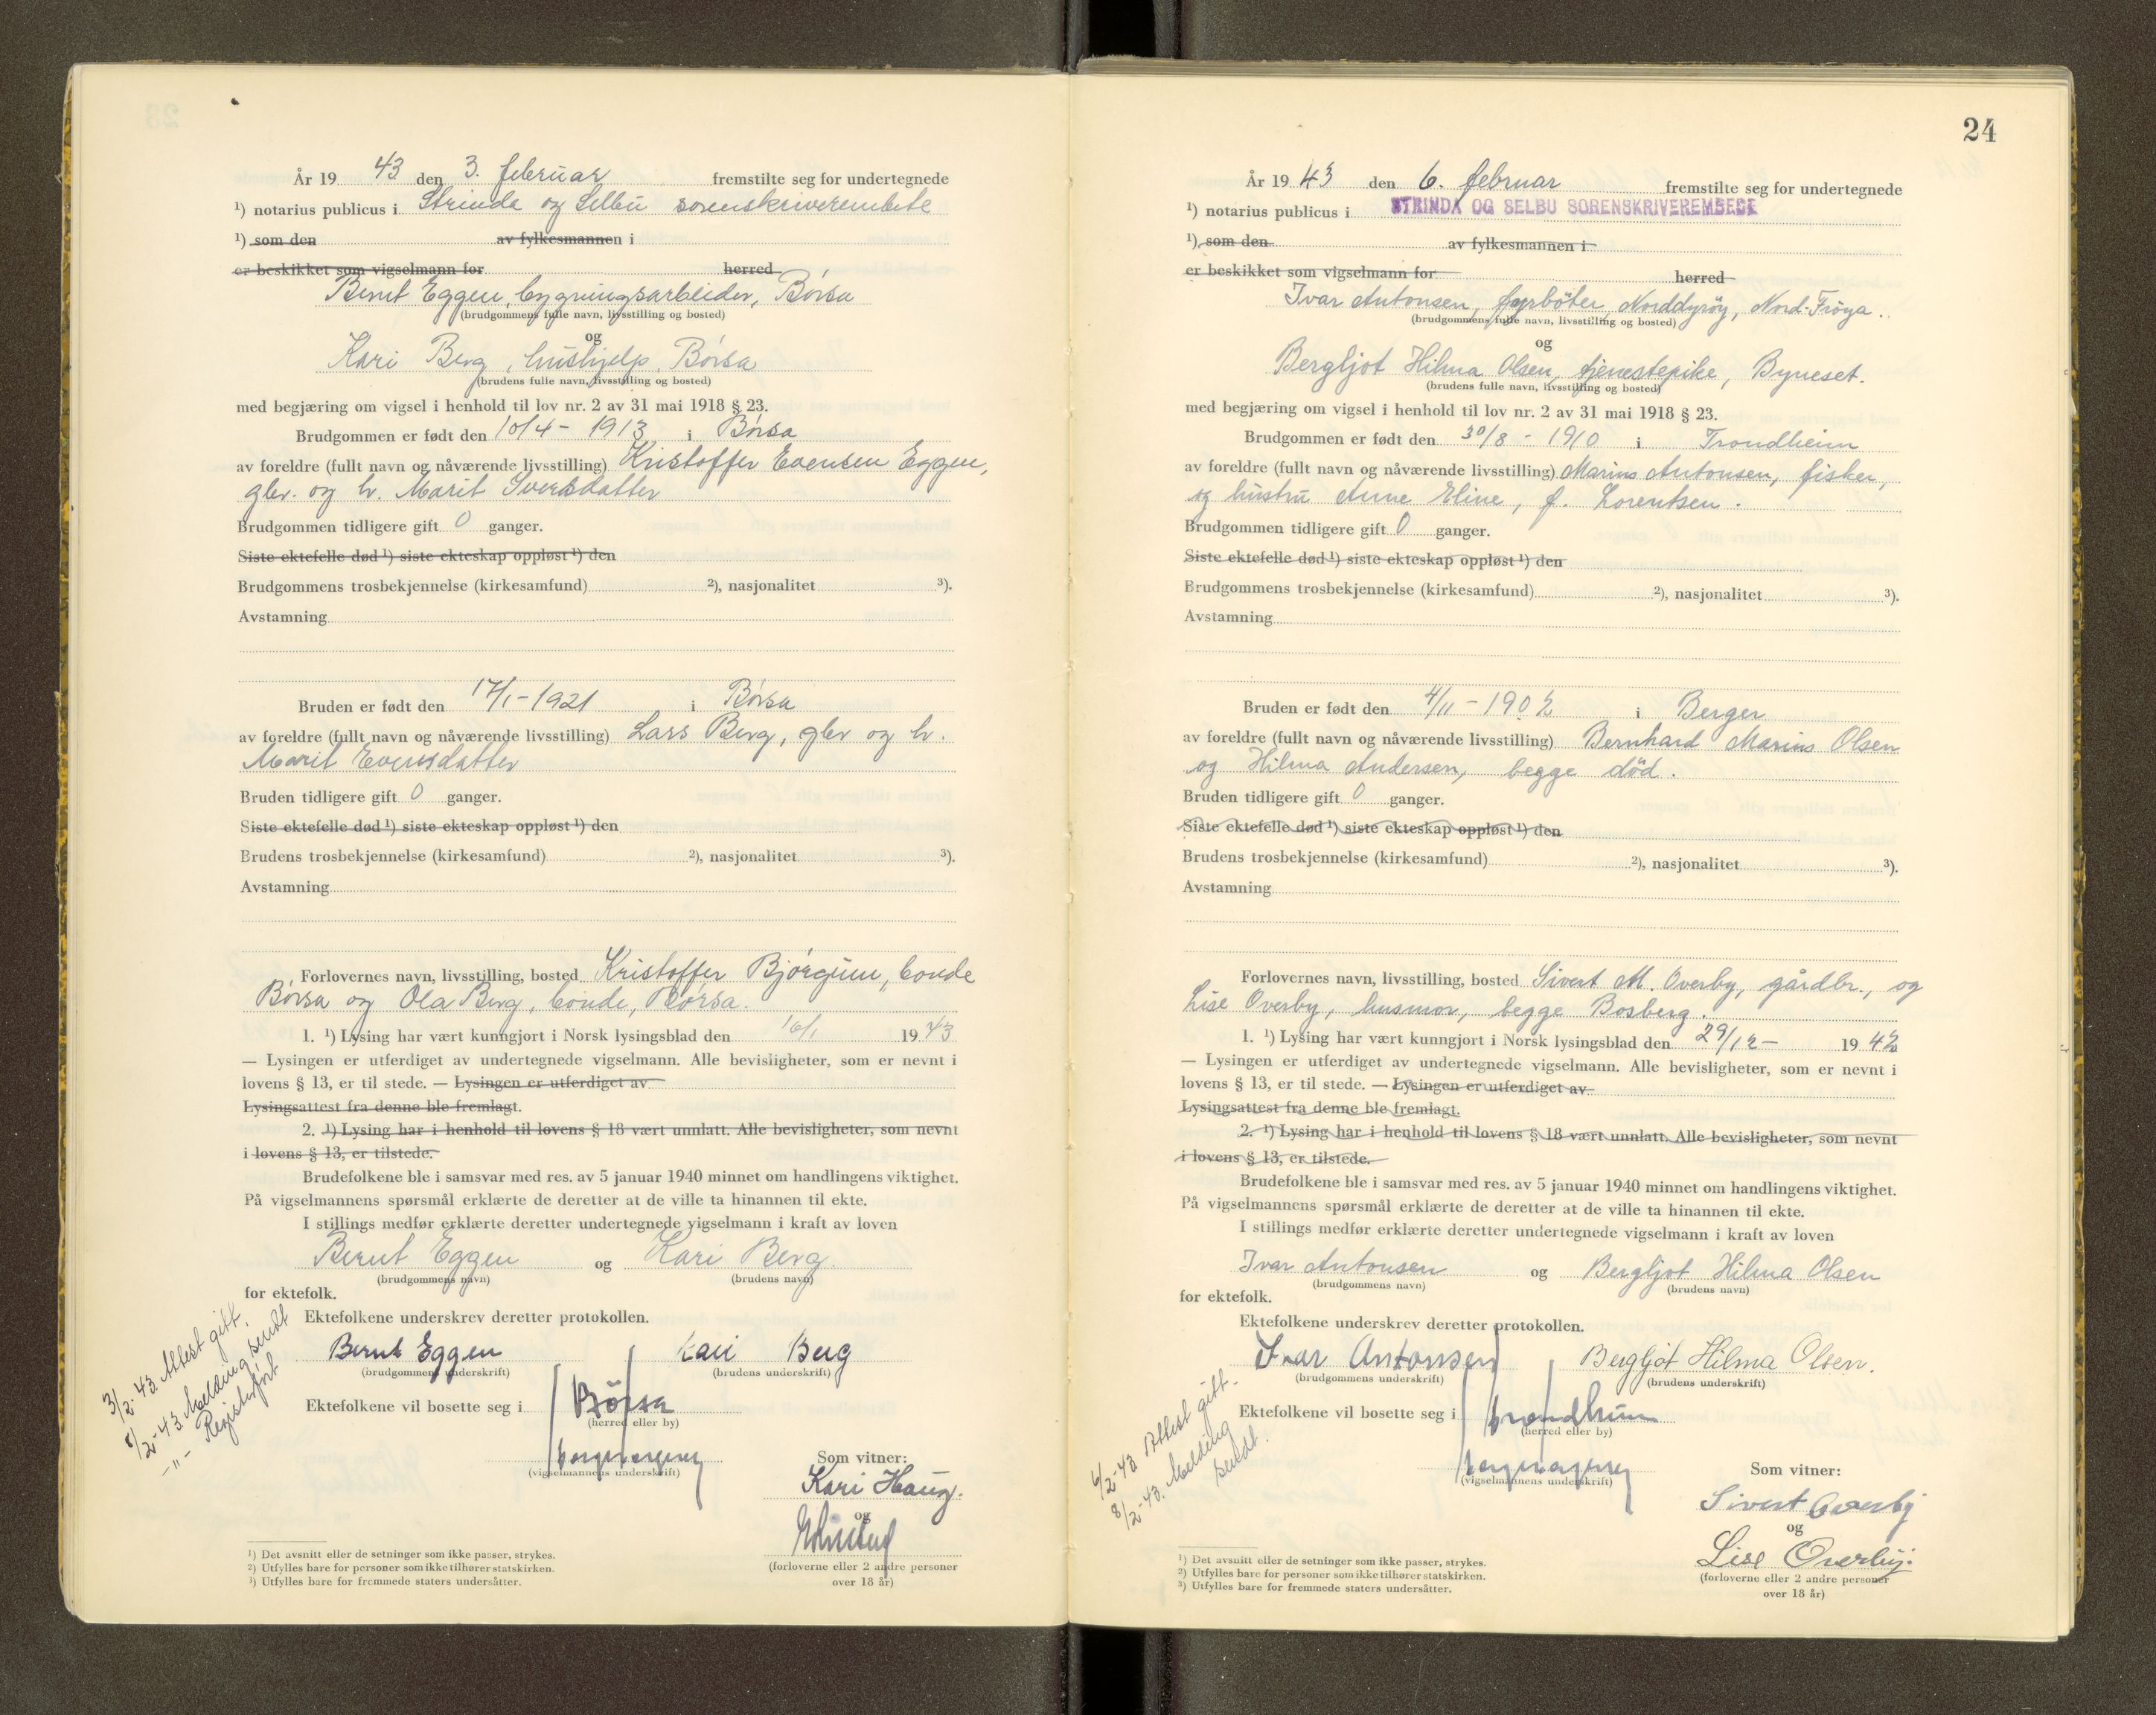 År 19 43 den 3. februar fremstilte seg for undertegnede
¹) notarius publicus i Strinda og Selbu sorenskriverembete
¹) som den av fylkesmannen i
er beskikket som vigselmann for herred
Bernt Eggen, bygningsarbeider, Børsa
(brudgommens fulle navn, livsstilling og bosted)
og
Kari Berg, hushjelp, Børsa
(brudens fulle navn, livsstilling og bosted)
med begjæring om vigsel i henhold til lov nr. 2 av 31 mai 1918 § 23.
Brudgommen er født den 10/4 - 1913 i Børsa
av foreldre (fullt navn og nåværende livsstilling) Kristoffer Evensen Eggen,
gbr. og h. Marit Sivertsdatter
Brudgommen tidligere gift 0 ganger.
Siste ektefelle død ¹) siste ekteskap oppløst ¹) den
Brudgommens trosbekjennelse (kirkesamfund) ²), nasjonalitet ³).
Avstamning
Bruden er født den 17/1 - 1921 i Børsa
av foreldre (fullt navn og nåværende livsstilling) Lars Berg, gbr og h.
Marit Evensdatter
Bruden tidligere gift 0 ganger.
Siste ektefelle død ¹) siste ekteskap oppløst ¹) den
Brudens trosbekjennelse (kirkesamfund) ²), nasjonalitet ³).
Avstamning
Forlovernes navn, livsstilling, bosted Kristoffer Bjørgum, bonde
Børsa og Ola Berg, bonde, Børsa.
1. ¹) Lysing har vært kunngjort i Norsk lysingsblad den 16/1 19 43
— Lysingen er utferdiget av undertegnede vigselmann. Alle bevisligheter, som er nevnt i
lovens § 13, er til stede. — Lysingen er utferdiget av
Lysingsattest fra denne ble fremlagt.
2. ¹) Lysing har i henhold til lovens § 18 vært unnlatt. Alle bevisligheter, som nevnt
i lovens § 13, er tilstede.
Brudefolkene ble i samsvar med res. av 5 januar 1940 minnet om handlingens viktighet.
På vigselmannens spørsmål erklærte de deretter at de ville ta hinannen til ekte.
I stillings medfør erklærte deretter undertegnede vigselmann i kraft av loven
Bernt Eggen og Kari Berg.
(brudgommens navn) (brudens navn)
for ektefolk.
Ektefolkene underskrev deretter protokollen.
Bernt Eggen Kari Berg
(brudgommens underskrift) (brudens underskrift)
Ektefolkene vil bosette seg i Børsa
(herred eller by)
(vigselmannens underskrift)
Som vitner:
Kari Haug.
og
(forloverne eller 2 andre personer
over 18 år)
3/2-43. Attest gitt.
8/2-43. Melding sendt
-"- Registerført
¹) Det avsnitt eller de setninger som ikke passer, strykes.
²) Utfylles bare for personer som ikke tilhører statskirken.
³) Utfylles bare for fremmede staters undersåtter.
24
År 19 43 den 6. februar fremstilte seg for undertegnede
¹) notarius publicus i STRINDA OG SELBU SORENSKRIVEREMBEDE
¹) som den av fylkesmannen i
er beskikket som vigselmann for herred
Ivar Antonsen, fyrbøter, Norddyrøy, Nord-Frøya.
(brudgommens fulle navn, livsstilling og bosted)
og
Bergljot Hilma Olsen, tjenestepike, Byneset.
(brudens fulle navn, livsstilling og bosted)
med begjæring om vigsel i henhold til lov nr. 2 av 31 mai 1918 § 23.
Brudgommen er født den 30/8 - 1910 i Trondheim
av foreldre (fullt navn og nåværende livsstilling) Marius Antonsen, fisker,
og hustru Anne Eline, f. Lorentsen.
Brudgommen tidligere gift 0 ganger.
Siste ektefelle død ¹) siste ekteskap oppløst ¹) den
Brudgommens trosbekjennelse (kirkesamfund) ²), nasjonalitet ³).
Avstamning
Bruden er født den 4/11 - 1902 i Berger
av foreldre (fullt navn og nåværende livsstilling) Bernhard Marius Olsen
og Hilma Andersen, begge død.
Bruden tidligere gift 0 ganger.
Siste ektefelle død ¹) siste ekteskap oppløst ¹) den
Brudens trosbekjennelse (kirkesamfund) ²), nasjonalitet ³).
Avstamning
Forlovernes navn, livsstilling, bosted Sivert M. Overby, gårdbr., og
Lise Overby, husmor, begge Bosberg.
1. ¹) Lysing har vært kunngjort i Norsk lysingsblad den 29/12 - 19 42
— Lysingen er utferdiget av undertegnede vigselmann. Alle bevisligheter, som er nevnt i
lovens § 13, er til stede. — Lysingen er utferdiget av
Lysingsattest fra denne ble fremlagt.
2. ¹) Lysing har i henhold til lovens § 18 vært unnlatt. Alle bevisligheter, som nevnt
i lovens § 13, er tilstede.
Brudefolkene ble i samsvar med res. av 5 januar 1940 minnet om handlingens viktighet.
På vigselmannens spørsmål erklærte de deretter at de ville ta hinannen til ekte.
I stillings medfør erklærte deretter undertegnede vigselmann i kraft av loven
Ivar Antonsen og Bergljot Hilma Olsen
(brudgommens navn) (brudens navn)
for ektefolk.
Ektefolkene underskrev deretter protokollen.
Ivar Antonsen Bergljot Hilma Olsen.
(brudgommens underskrift) (brudens underskrift)
Ektefolkene vil bosette seg i Trondheim
(herred eller by)
(vigselmannens underskrift)
Som vitner:
Sivert Overby
og
Lise Overby.
(forloverne eller 2 andre personer
over 18 år)
6/2-43 Attest gitt.
8/2-43. Melding
sendt.
¹) Det avsnitt eller de setninger som ikke passer, strykes.
²) Utfylles bare for personer som ikke tilhører statskirken.
³) Utfylles bare for fremmede staters undersåtter.